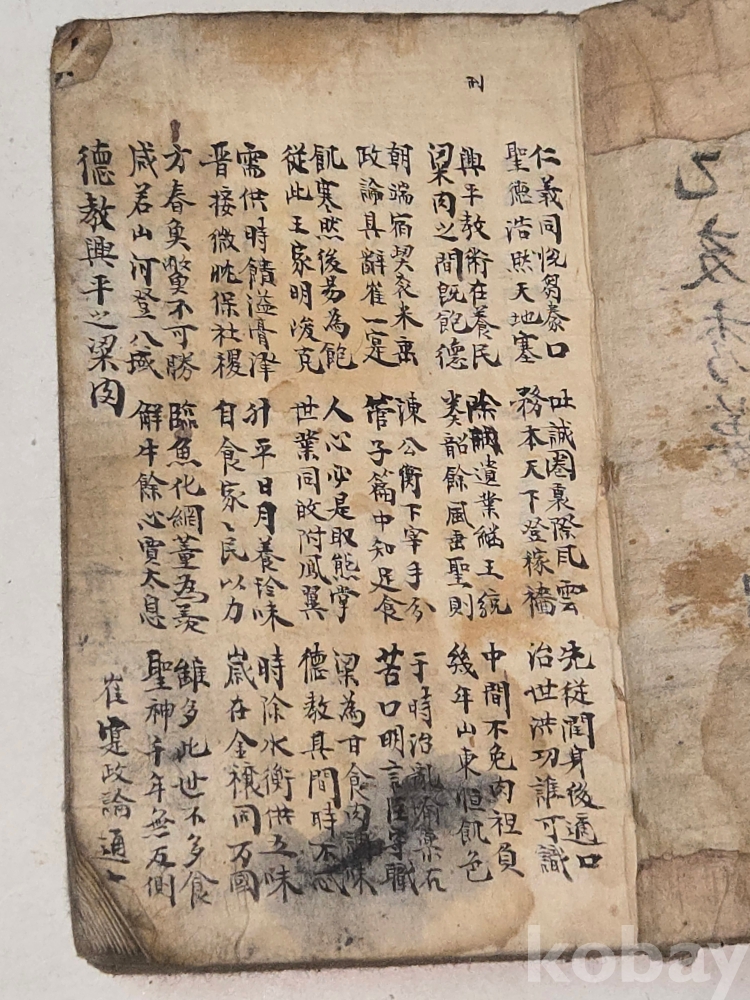 刑
仁義同悅芻泰口
聖德浩然天地塞
吐誠圈裏際風雲
務本天下登稼穡
先從潤身後適口
治世洪功誰可識
興平教術在養民
梁肉之間旣飽德
除殘遺業継王統
奏韶餘風垂聖則
中間不免肉袒負
幾年山東恒飢色
朝端宿契衮米垂
政論具辭崔一寔
湅公衡下宰手分
管子篇中知足食
于時治亂喻藥石
苦口明言臣守職
飢寒然後易為飽
從此王家明浚克
人心必是取熊掌
世業同攸附鳳翼
梁為甘食肉調味
德教具間時不忒
需供時饋溢膏澤
晋接微眈保社稷
升平日月養珍味
甘食家〻民以力
時除水衡供五味
歲在金穰同万國
方春魚鱉不可勝
咸若山河登八域
臨魚化網董為羨
解牛餘心賈太息
雖多此世不多食
聖神千年無反側
德教興平之梁肉
崔寔政論 通一
乙亥
kobay